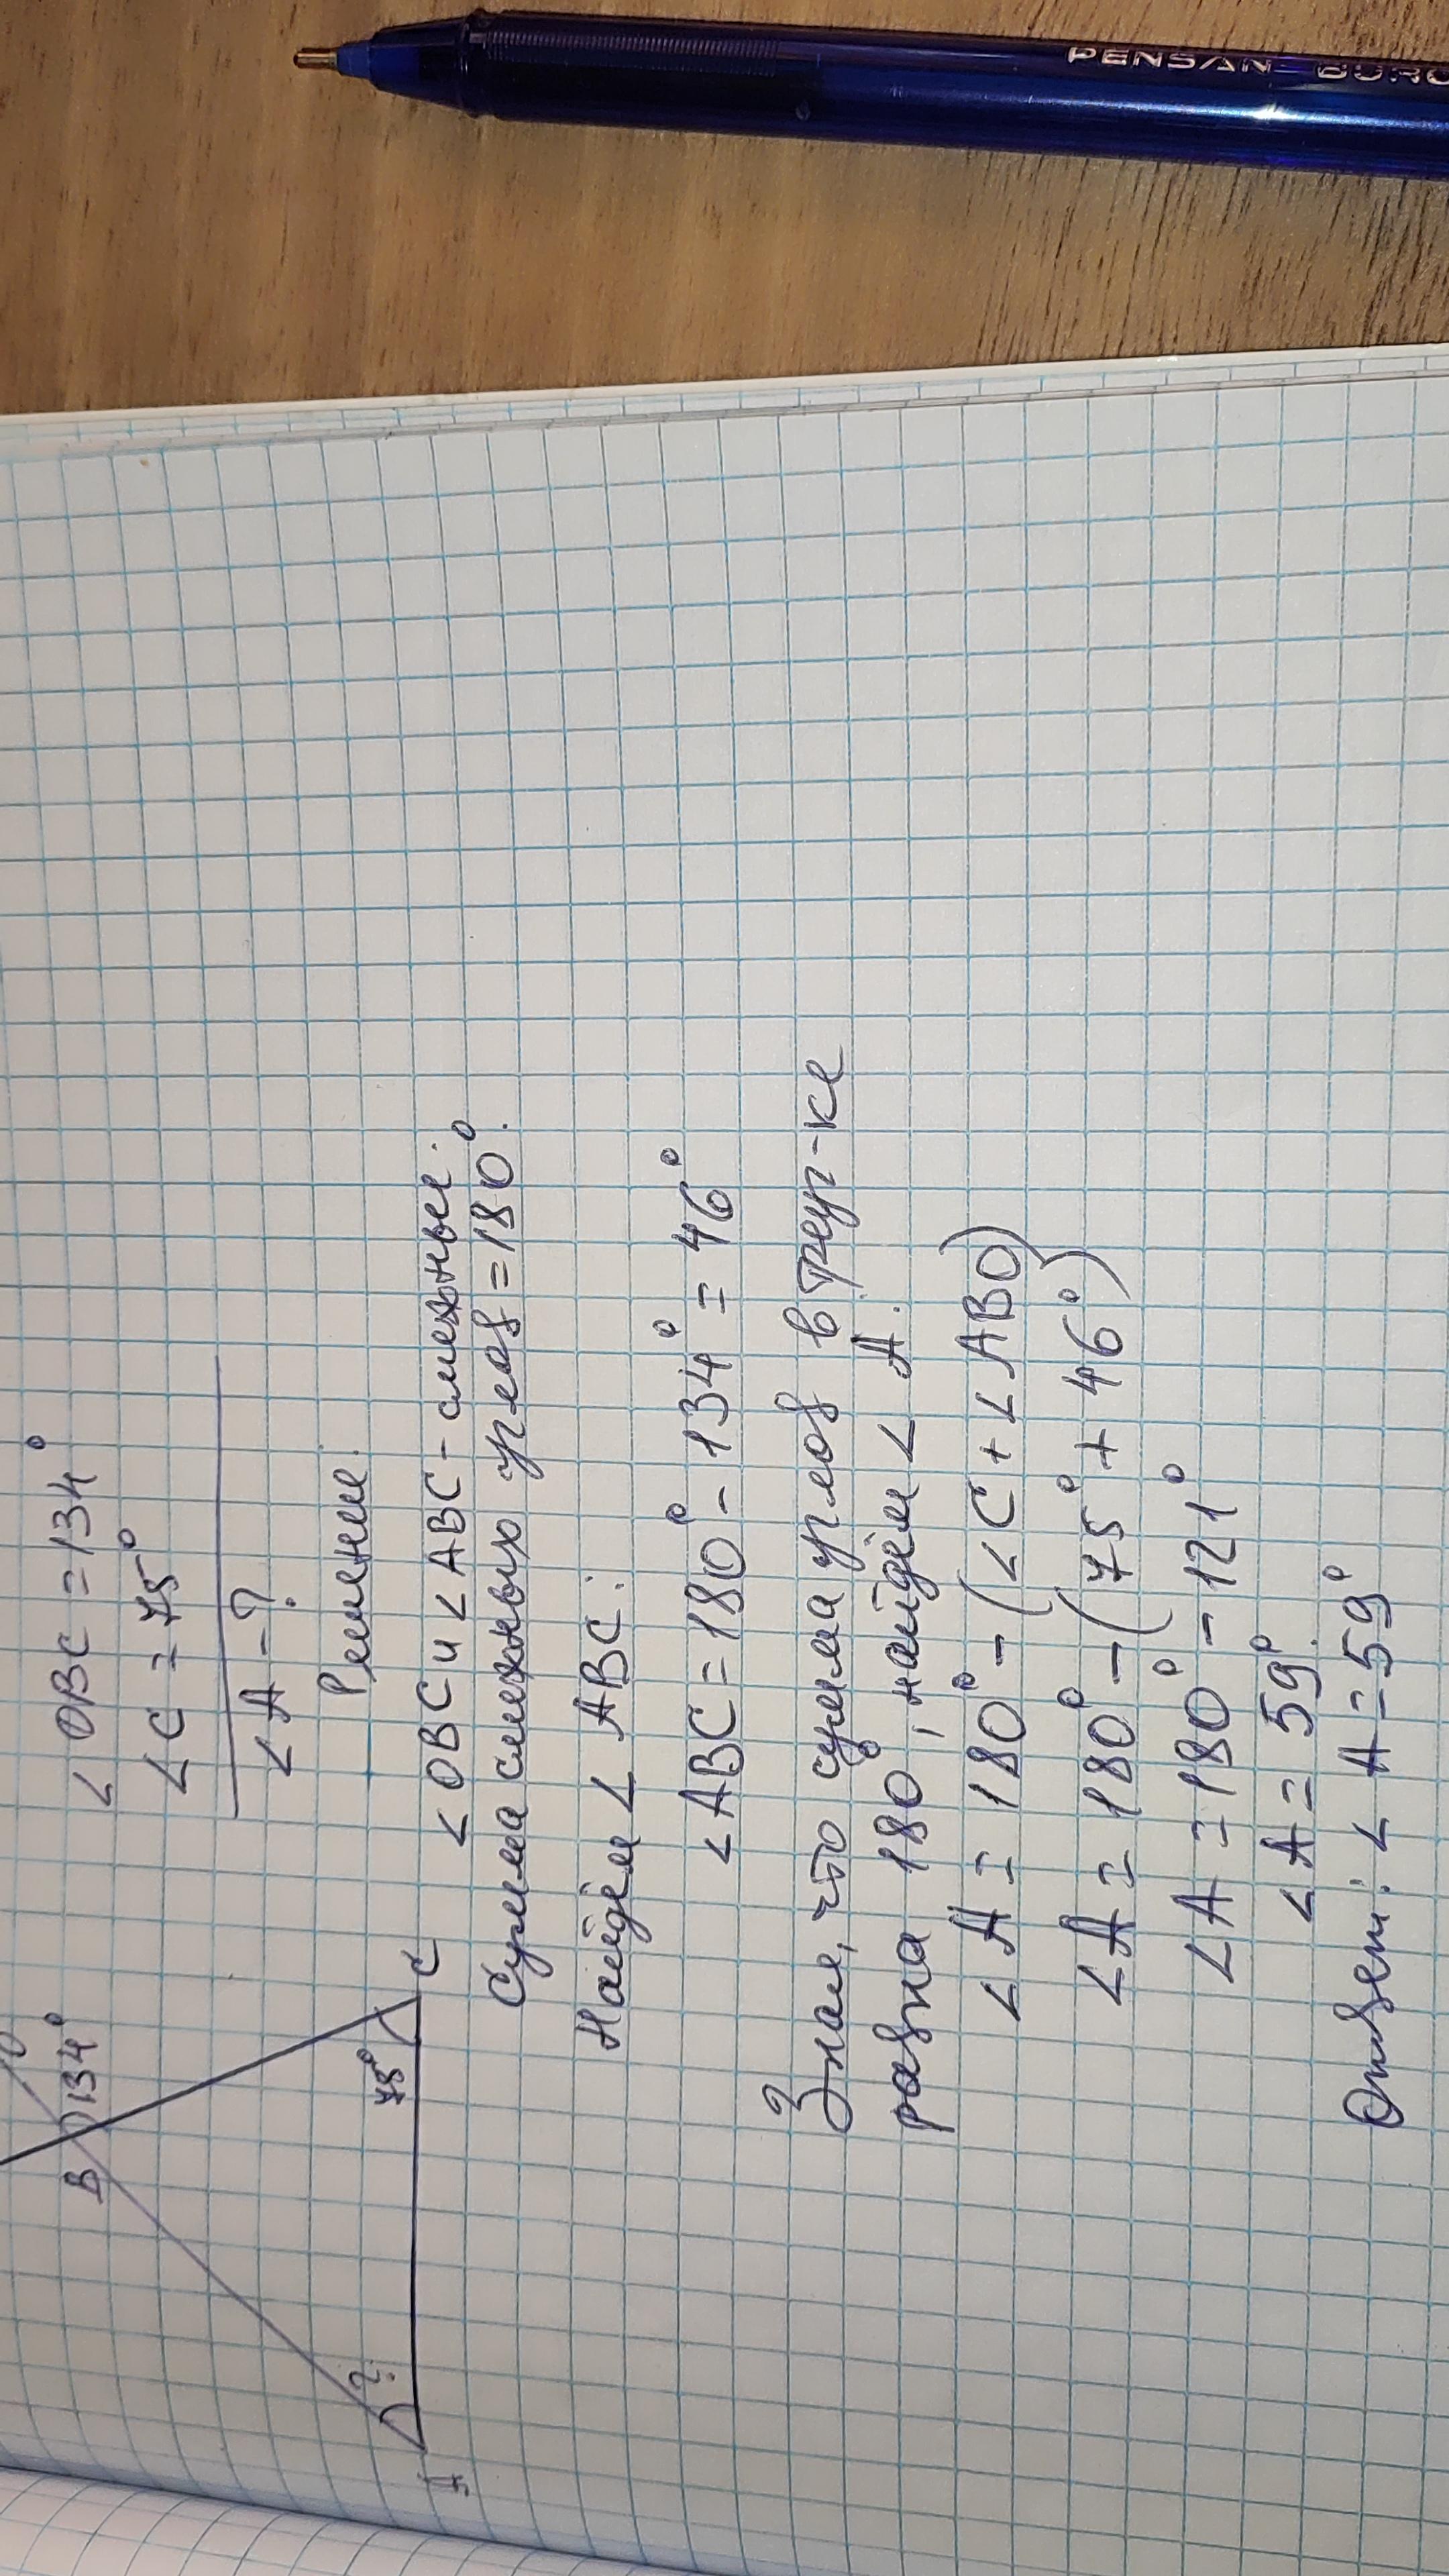 ∠ OBC = 134°
∠ C = 75°
∠ A - ?
O
B
134°
75°
?
A
C
Решение.
∠ OBC и ∠ ABC - смежные.
Сумма смежных углов = 180°.
Найдём ∠ ABC:
∠ ABC = 180° - 134° = 46°
Зная, что сумма углов в треуг-ке
равна 180°, найдём ∠ A.
∠ A = 180° - (∠ C + ∠ ABO)
∠ A = 180° - (75° + 46°)
∠ A = 180° - 121°
∠ A = 59°
Ответ: ∠ A = 59°
PENSAN BURO